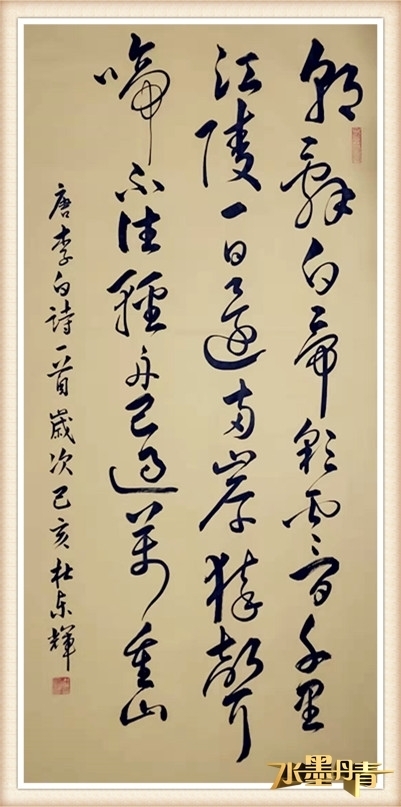 朝辭白帝彩雲間千里
江陵一日還兩岸猿聲
啼不住輕舟已過萬重山
唐李白詩一首歲次己亥杜东輝
水墨丹青